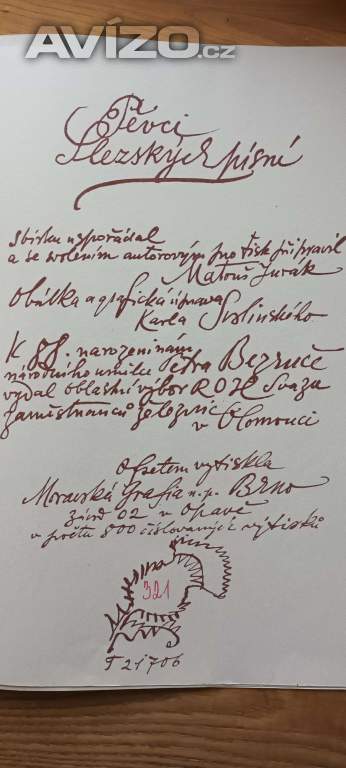 AVÍZO.cz
Pěvci
Slezských písní
Sbírku uspořádal
a se svolením autorovým pro tisk připravil
Matouš Jurák
Obálka a grafická úprava
Karla Svolinského
K 88. narozeninám
národního umělce Petra Bezruče
vydal oblastní výbor ROH Svazu
zaměstnanců železnic
v Olomouci
Ofsetem vytiskla
Moravská Grafia n. p. Brno
závod 02 v Opavě
v počtu 800 číslovaných výtisků
321
T 21706